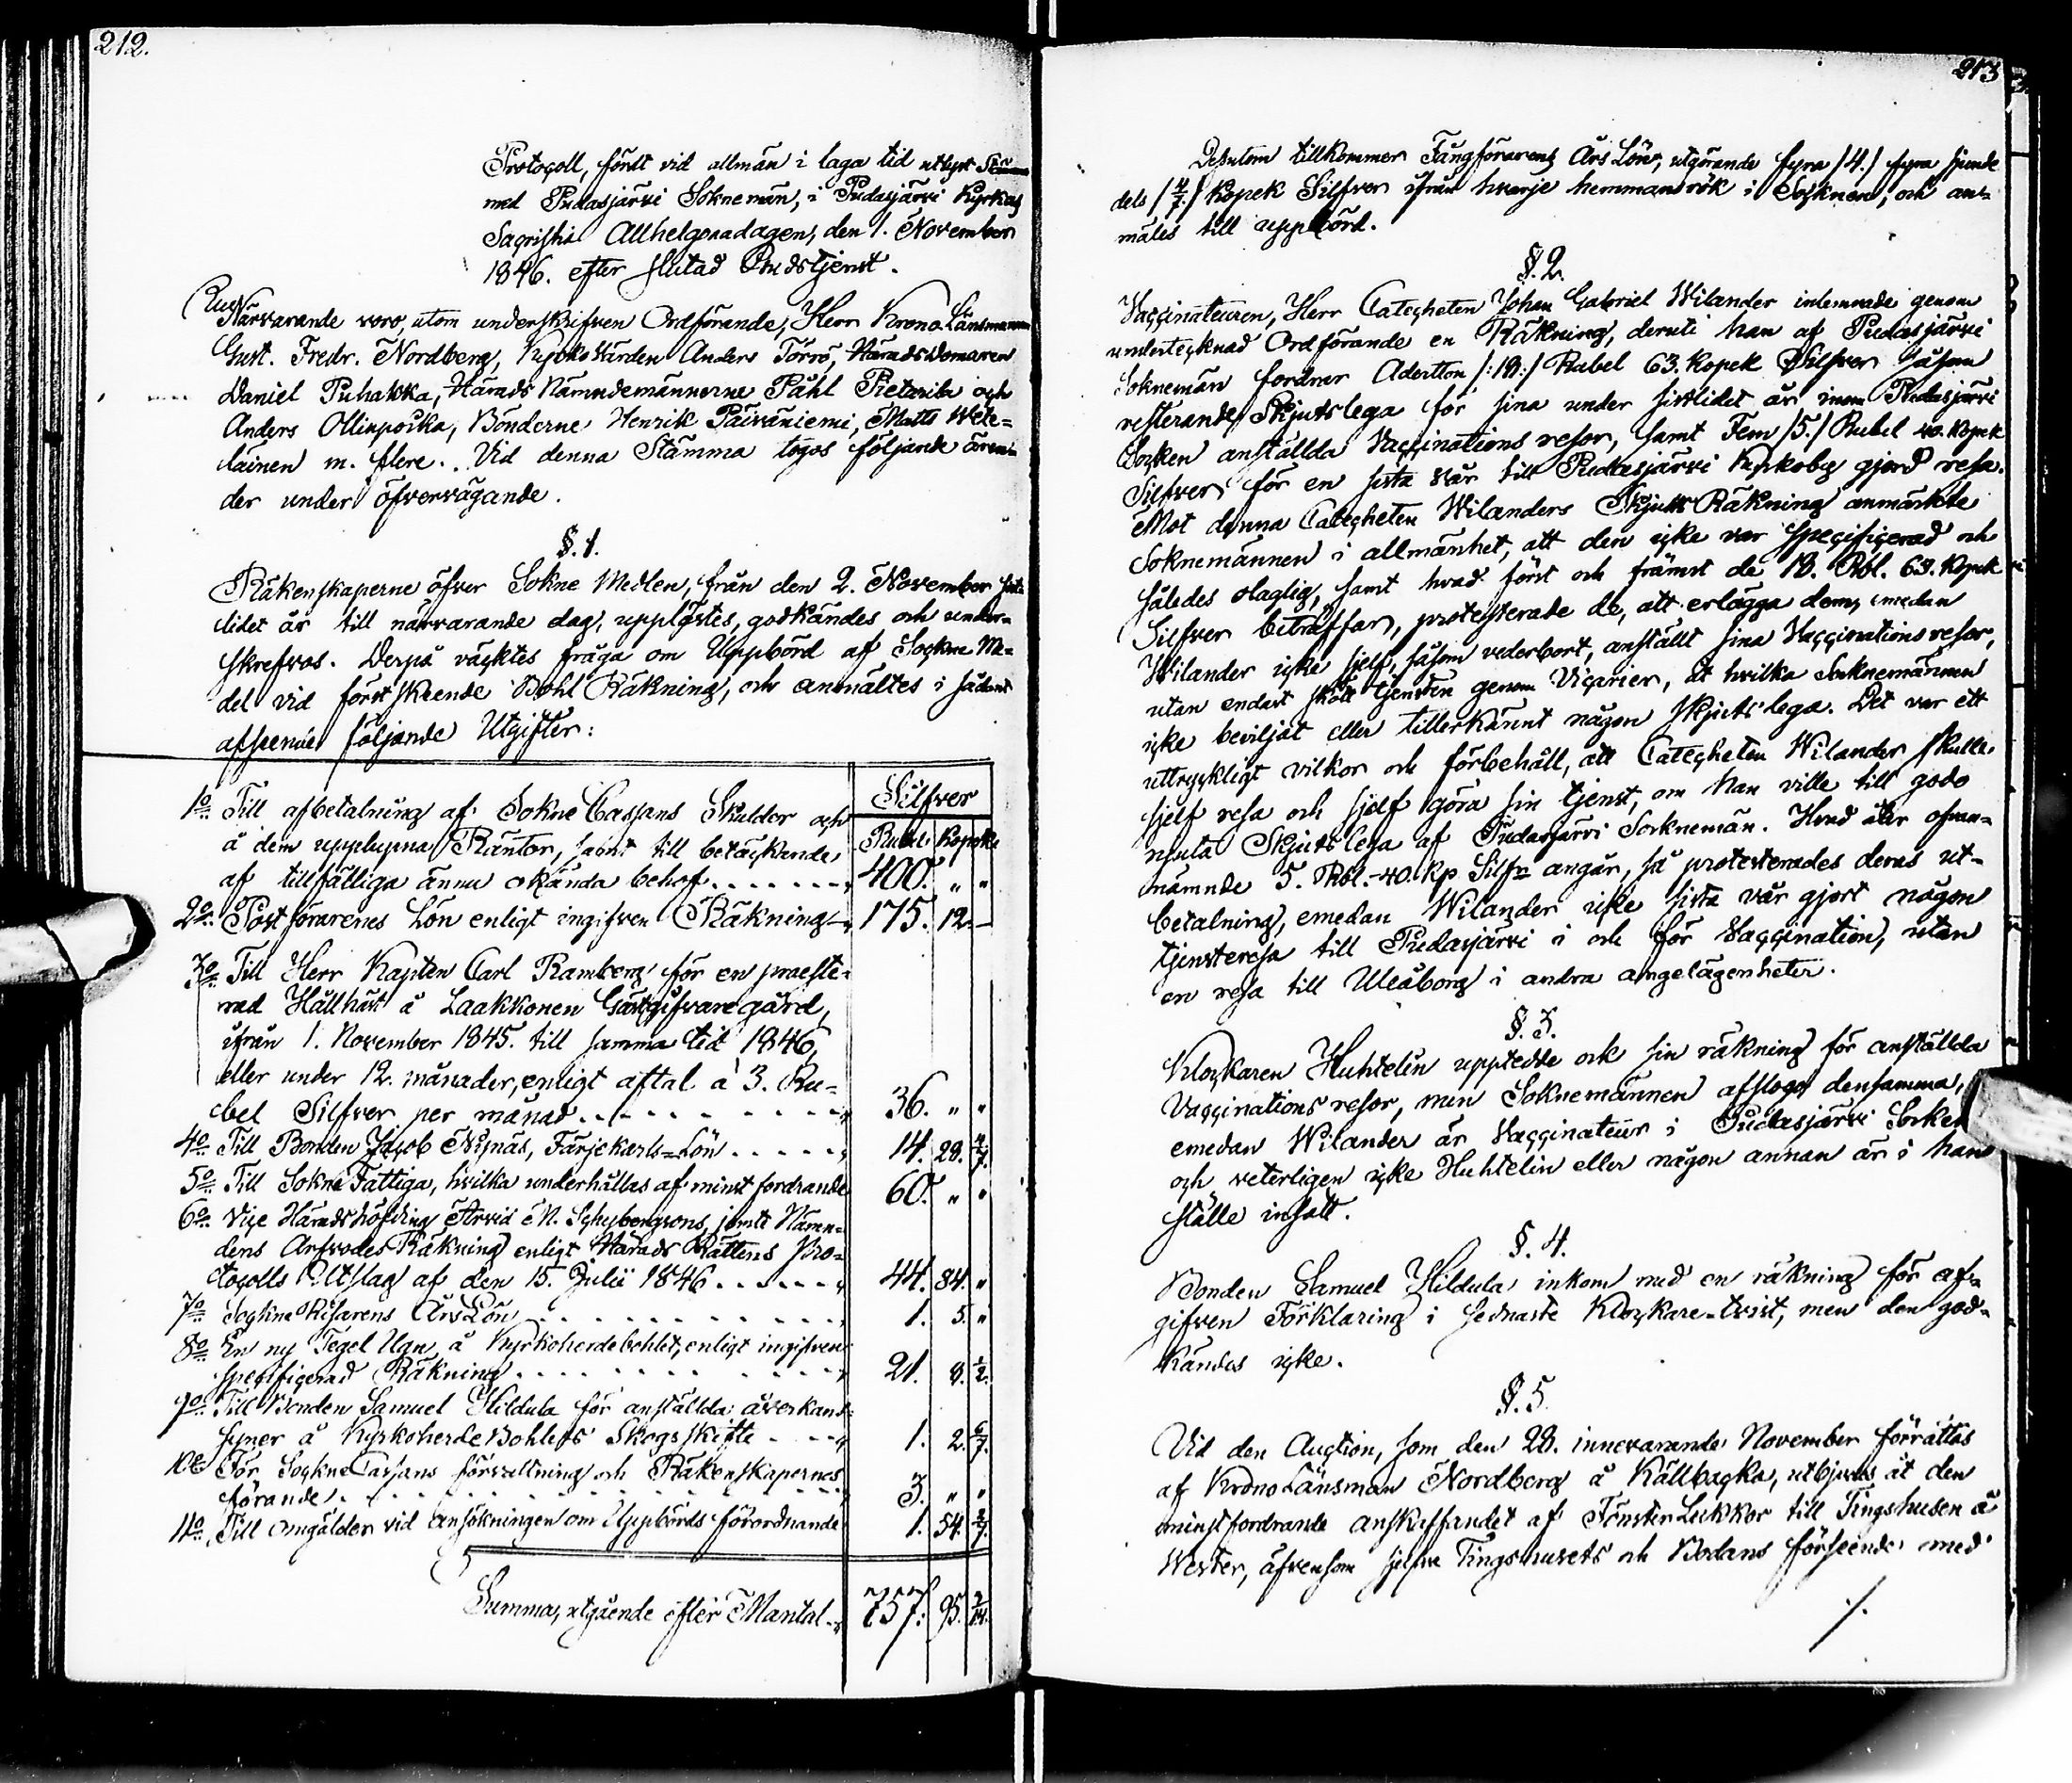 212.
Protocoll, fördt vid allmän i laga tid utlyst Stämma
med Pudasjärvi Soknemän, i Pudasjärvi Kyrkas
Sacristia Allhelgonadagen, den 1. November
1846. efter slutad Gudstjenst.
Närvarande voro, utom underskrifven Ordförande, Herr Krono Länsmannen
Gust. Fredr. Nordberg, Kyrko Värden Anders Törrö, Härads Domaren
Daniel Puhakka, Härads Nämndemännerne Påhl Pietarila och
Anders Ollinpoika, Bönderne Henrik Päiväniemi, Matts Wete=
läinen m. flere. Vid denna Stämma togos följande ären=
der under öfvervägande.
§. 1.
Räkenskaperne öfver Sokne Medlen, från den 2. November sist=
lidet år till närvarande dag, upplästes, godkändes och under=
skrefvos. Derpå väcktes fråga om Uppbörd af Sockne Me=
del vid först skeende Bohl Räkning, och anmältes i sådant
afseende följande Utgifter:
Silfver
Rubel Kopek
1o Till afbetalning af Sokne Cassans Skulder och
å dem upplupna Räntor, samt till betäckande
af tillfälliga ännu okända behof . . . . . . . 400. „ „
2o Postförarenes Lön enligt ingifven Räkning 175. 12. –
3o Till Herr Kapten Carl Ramberg för en præste=
rad Hållhäst å Laakkonen Gästgifvaregård,
ifrån 1. November 1845. till samma tid 1846,
eller under 12. månader, enligt aftal à 3. Ru=
bel Silfver per månad . . . . . . . . 36. „ „
4o Till Bonden Jacob Nynäs, Färjekarls=Lön . . . . . 14. 28. 4/7.
5o Till Sokne Fattiga, hvilka underhållas af minst fordrande 60. „ „
6o Vice Häradshöfding Arvid N. Schybergsons, jemte Näm̄n=
dens Arfvodes Räkning enligt Härads Rättens Pro=
tocolls Utslag af den 15. Julii 1846 . . . . . . 44. 84. „
7o Sockne Risarens ÅrsLön . . . . . . . . . . . 1. 5. „
8o En ny Tegel Ugn å Kyrkoherdebohlet, enligt ingifven
specificerad Räkning . . . . . . . . 21. 8. 1/2.
9o Till Bonden Samuel Hildula för anställda åverkans=
syner å Kyrkoherde Bohlets Skogsskifte . . . 1. 2. 6/7.
10o För Sockne Cassans förvaltning och Räkenskapernes
förande . . . . . . . . . . . . . . 3. „ „
11o Till Omgälder vid ansökningen om Uppbörds förordnande 1. 54. 2/7.
Summa, utgående efter Mantal 757. 95. 3/14.
213
Desutom tillkommer Fångförarens Års Lön, utgörande fyra /4./ fyra sjunde
dels /4/7./ Kopek Silfver ifrån hvarje hemmansrök i Socknen, och an=
mäles till uppbörd.
§. 2.
Vaccinateuren, Herr Catecheten Johan Gabriel Wilander inlemnade genom
undertecknad Ordförande en Räkning, deruti han af Pudasjärvi
Soknemän fordrar Aderton /:18:/ Rubel 63. Kopek Silfver såsom
resterande Skjutslega för sina under sistlidet år inom Pudasjärvi
Socken anställda Vaccinations resor, samt Fem /5./ Rubel 40. Kopek
Silfver för en sista vår till Pudasjärvi Kyrkoby gjord resa.
Mot denna Catecheten Wilanders Skjuts Räkning anmärkte
Soknemännen i allmänhet, att den icke var specificerad och
således olaglig, samt hvad först och främst de 18. Rbl. 63. Kopek
Silfver beträffar, protesterade de, att erlägga dem, emedan
Wilander icke sjelf, såsom vederbort, anställt sina Vaccinations resor,
utan endast skött tjensten genom Vicarier, åt hvilka Soknemännen
icke beviljat eller tillerkännt någon Skjutslega. Det var ett
uttryckligt vilkor och förbehåll, att Catecheten Wilander skulle
sjelf resa och sjelf göra sin tjenst, om han ville till godo
njuta Skjutslega af Pudasjärvi Socknemän. Hvad åter ofvan=
nämnde 5. Rbl. 40. Kp Silfr angår, så protesterades deras ut=
betalning, emedan Wilander icke sista vår gjort någon
tjensteresa till Pudasjärvi i och för Vaccination, utan
en resa till Uleåborg i andra angelägenheter.
§. 3.
Klockaren Huhtelin upptedde ock sin räkning för anställda
Vaccinations resor, men Soknemännen afslogo densamma,
emedan Wilander är Vaccinateur i Pudasjärvi Socken
och veterligen icke Huhtelin eller någon annan är i hans
ställe insatt.
§. 4.
Bonden Samuel Hildula inkom med en räkning för af=
gifven Förklaring i sednaste Klockare=tvist, men den god=
kändes icke.
§. 5.
Vid den Auction, som den 28. innevarande November förrättas
af Krono Länsman Nordberg å Källbacka, utbjudes åt den
minstfordrande anskaffandet af Fönster Luckor till Tingshusen å
Wester, äfvensom sjelfva Tingshusets och Bodans förseende med
./.